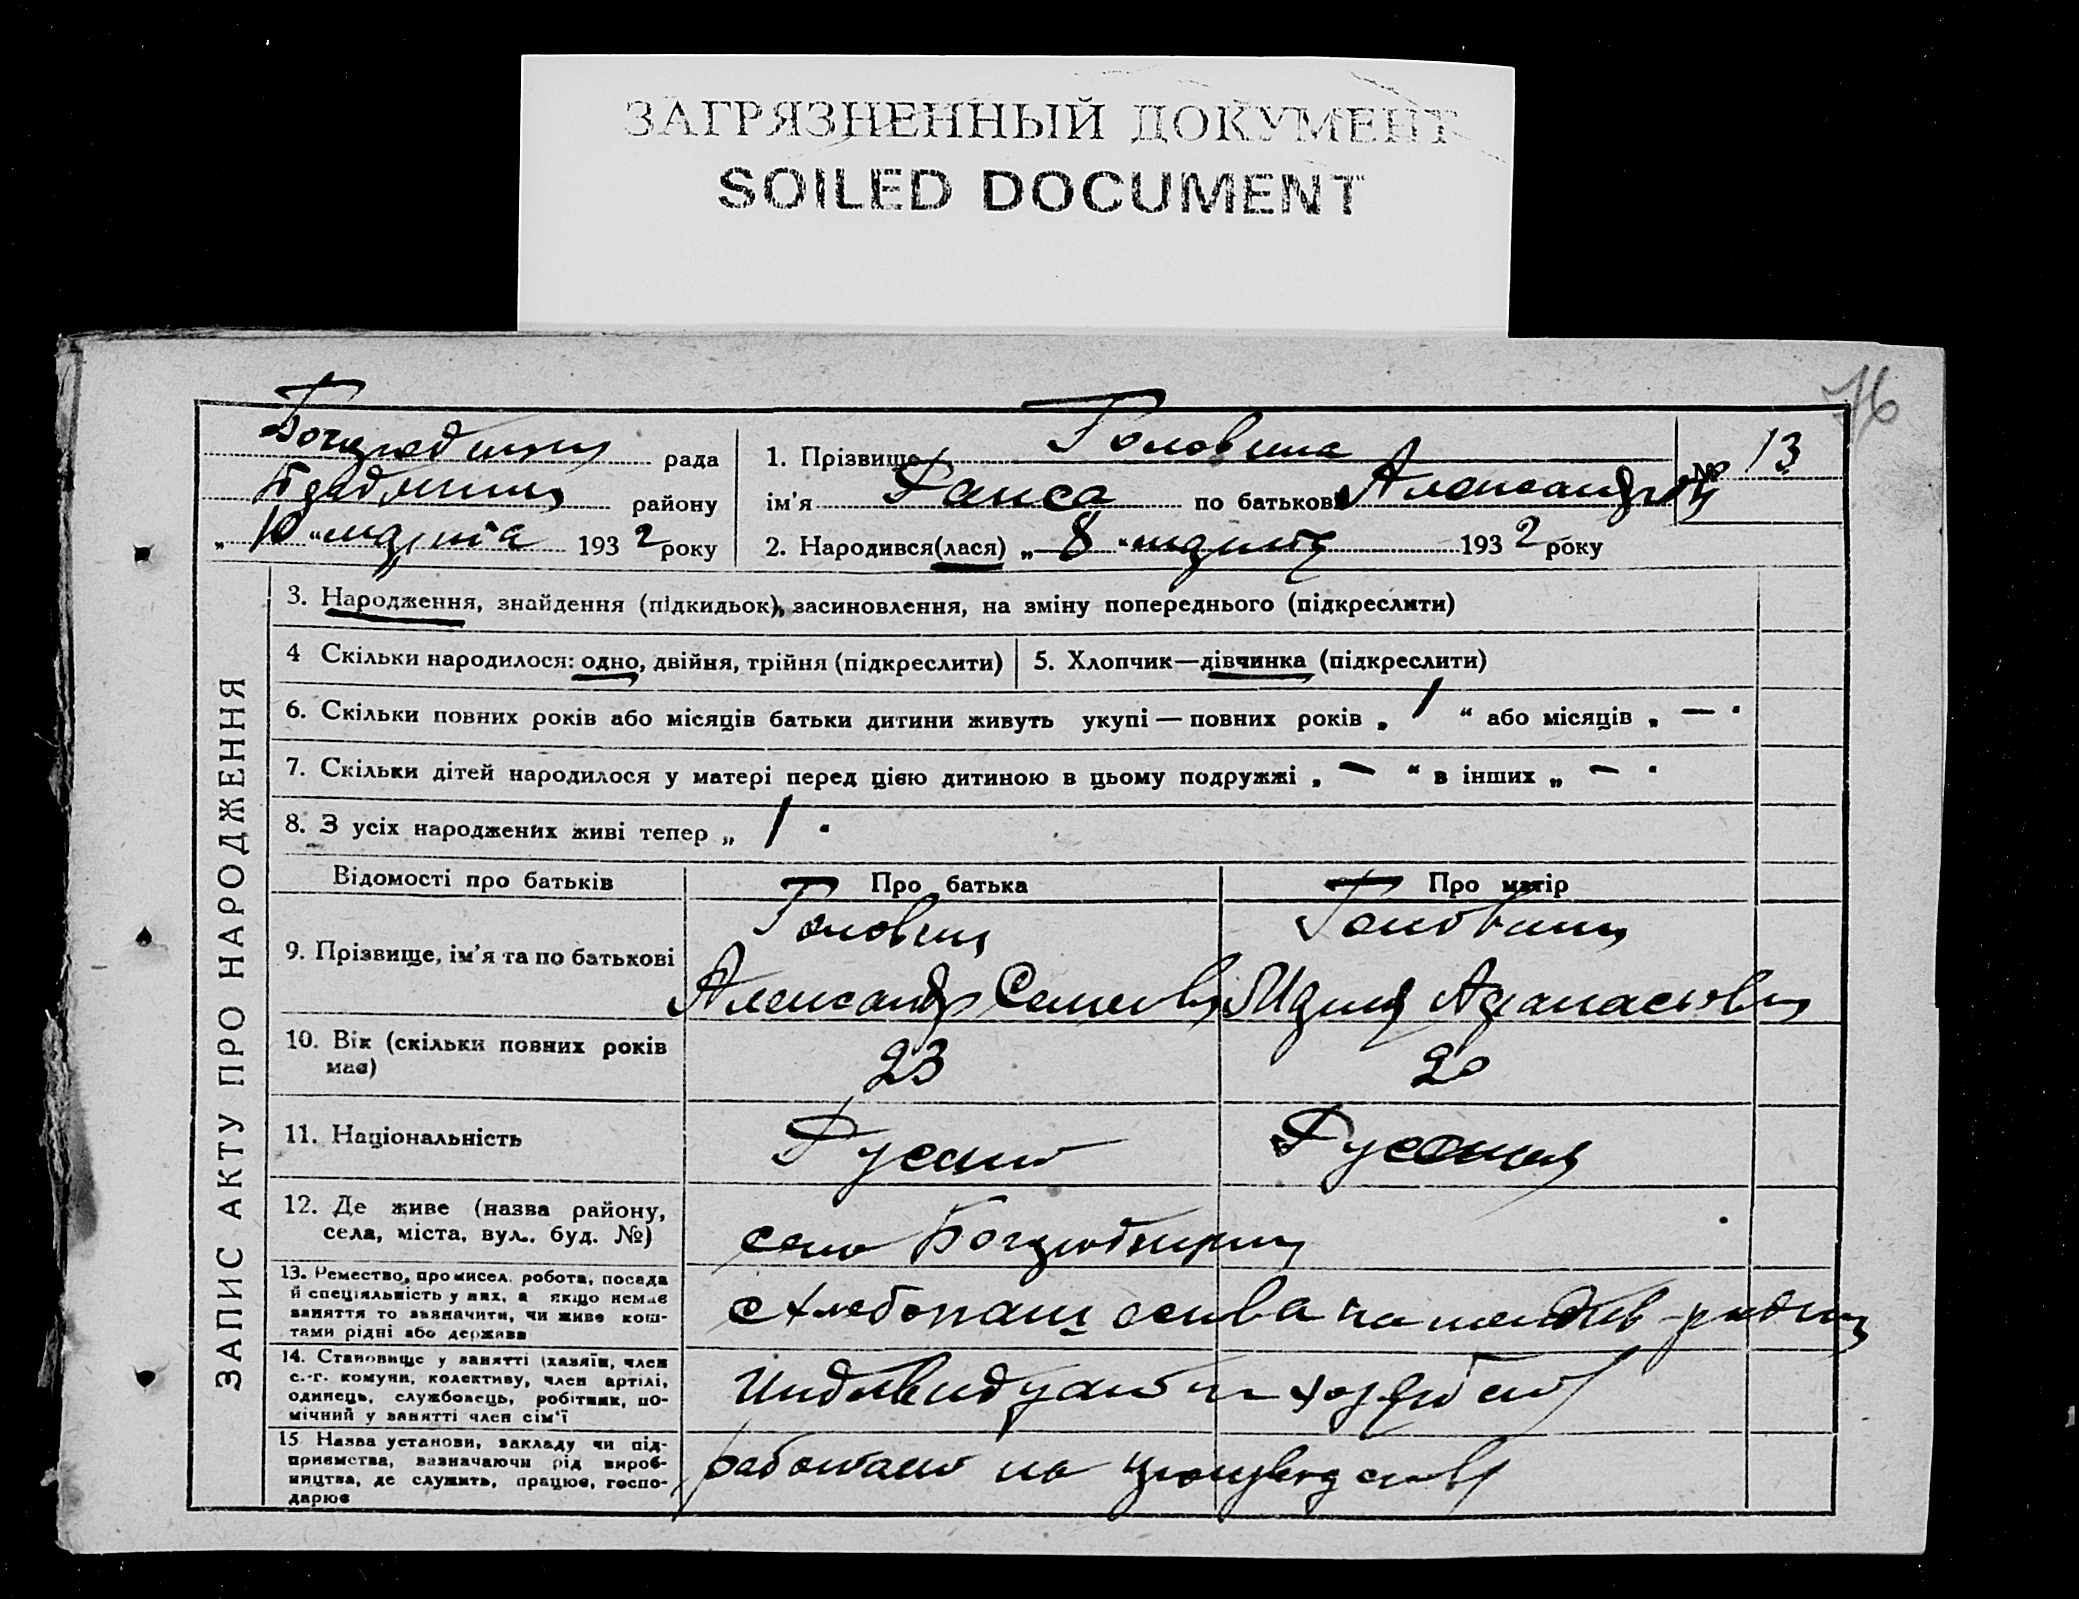 ЗАГРЯЗНЕННЫЙ ДОКУМЕНТ
SOILED DOCUMENT
76
рада
району
„ 10 “ марта 1932 року
1. Прізвище Головина
ім'я Раиса по батькові
№ 13
2. Народився(лася) „ 8 “ марта 1932 року
ЗАПИС АКТУ ПРО НАРОДЖЕННЯ
3. Народження, знайдення (підкидьок), засиновлення, на зміну попереднього (підкреслити)
4 Скільки народилося: одно, двійня, трійня (підкреслити)
5. Хлопчик—дівчинка (підкреслити)
6. Скільки повних років або місяців батьки дитини живуть укупі — повних років „ 1 “ або місяців „ — .
7. Скільки дітей народилося у матері перед цією дитиною в цьому подружжі „ — “ в інших „ — .
8. З усіх народжених живі тепер „ 1 .
Відомості про батьків
Про батька
Про матір
9. Прізвище, ім'я та по батькові
Головин
Александр
Мария Афанасьевн
10. Вік (скільки повних років
має)
23
20
11. Національність
Русский
Русская
12. Де живе (назва району,
села, міста, вул., буд. №)
село
13. Ремество, промисел, робота, посада
й спеціяльність у них, а якщо немає
заняття то зазначити, чи живе кош-
тами рідні або держави
хлебопаш
14. Становище у занятті (хазяїн, член
с.-г. комуни, колективу, член артілі,
одинець, службовець, робітник, по-
мічний у занятті член сім'ї
15 Назва установи, закладу чи під-
приємства, зазначаючи рід вироб-
ництва, де служить, працює, госпо-
дарює
работает на производстве